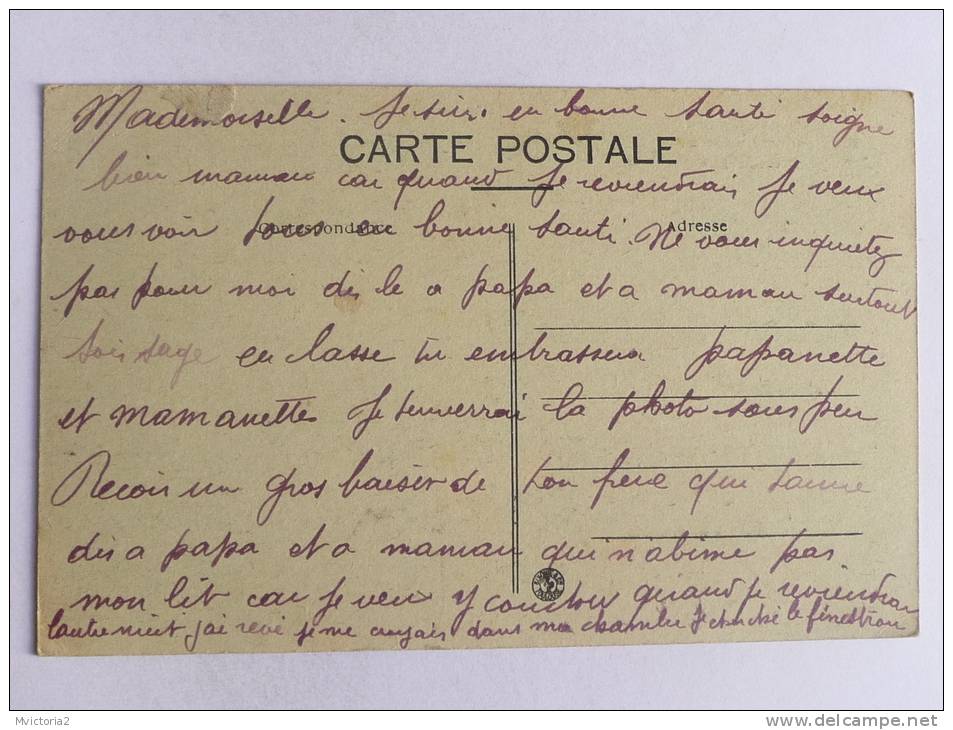 Mademoiselle. Je suis en bonne santé soigne
CARTE POSTALE
bien maman car quand Je reviendrais Je veux
vous voir tous en bonne santé. Ne vous inquietez
Correspondance
Adresse
pas pour moi dis le a papa et a maman surtout
sois sage en classe tu embrassera papanette
et mamanette Je tenverrai la photo sous peu
Recois un gros baiser de ton frere qui taime
dis a papa et a maman qui n'abime pas
mon lit car Je veu y coucher quand je reviendrai
lautre nuit j'ai revé je me croyais dans ma chambre Je cherché le fenestrou
Mvictoria2
www.delcampe.net